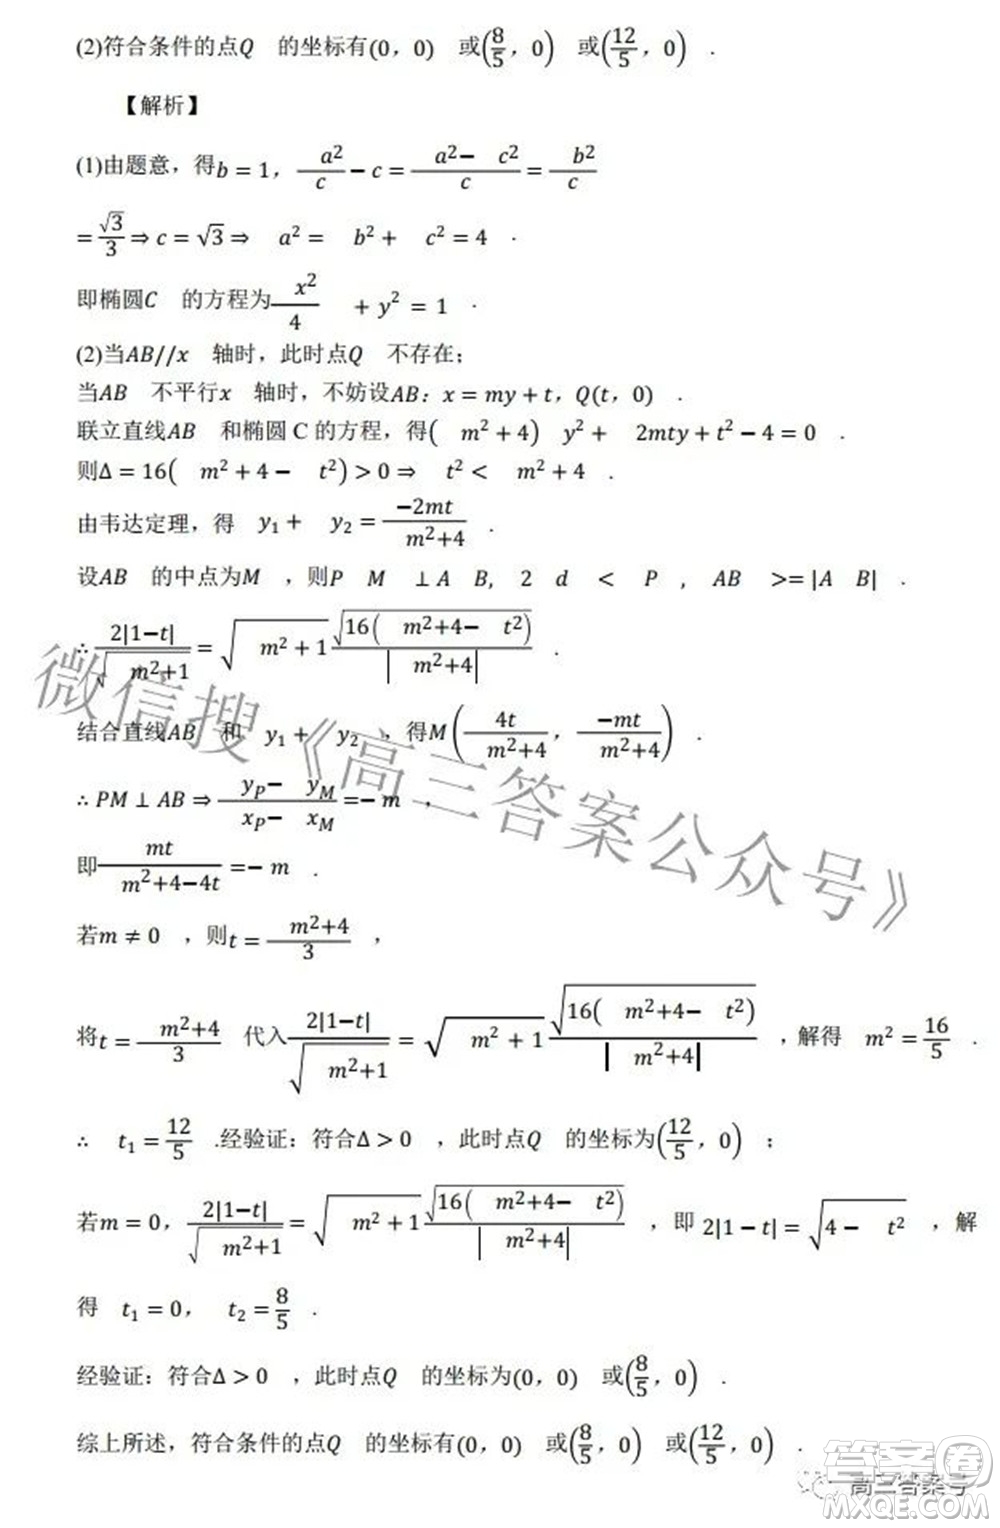 (2)符合条件的点Q 的坐标有(0，0) 或(8/5，0) 或(12/5，0) .
【解析】
(1)由题意，得b=1，a²/c−c=(a²−c²)/c=b²/c
=√3/3⇒c=√3⇒ a²= b²+ c²=4 .
即椭圆C 的方程为x²/4 +y²=1 .
(2)当AB//x 轴时，此时点Q 不存在；
当AB 不平行x 轴时，不妨设AB：x=my+t，Q(t，0) .
联立直线AB 和椭圆 C 的方程，得( m²+4) y²+ 2mty+t²−4=0 .
则Δ=16( m²+4− t²)>0⇒ t²< m²+4 .
由韦达定理，得 y₁+ y₂=−2mt/(m²+4) .
设AB 的中点为M ，则P M ⊥A B, 2 d < P , AB >=|A B| .
∴2|1−t|/√(m²+1)=√(m²+1)√(16(m²+4−t²))/|m²+4| .
结合直线AB 和 y₁+ y₂ ，得M(4t/(m²+4)，−mt/(m²+4)) .
∴PM⊥AB⇒(y_P−y_M)/(x_P−x_M)=−m ，
即mt/(m²+4−4t)=−m .
若m≠0 ，则t=(m²+4)/3 ，
将t=(m²+4)/3 代入2|1−t|/√(m²+1)=√(m²+1)√(16(m²+4−t²))/|m²+4| ，解得 m²=16/5 .
∴ t₁=12/5 .经验证：符合Δ>0 ，此时点Q 的坐标为(12/5，0) ；
若m=0，2|1−t|/√(m²+1)=√(m²+1)√(16(m²+4−t²))/|m²+4| ，即 2|1−t|=√(4−t²) ，解
得 t₁=0， t₂=8/5 .
经验证：符合Δ>0 ，此时点Q 的坐标为(0，0) 或(8/5，0) .
综上所述，符合条件的点Q 的坐标有(0，0) 或(8/5，0) 或(12/5，0) .
微信搜《高三答案公众号》
高三答案号
答案圈
MXQE.COM